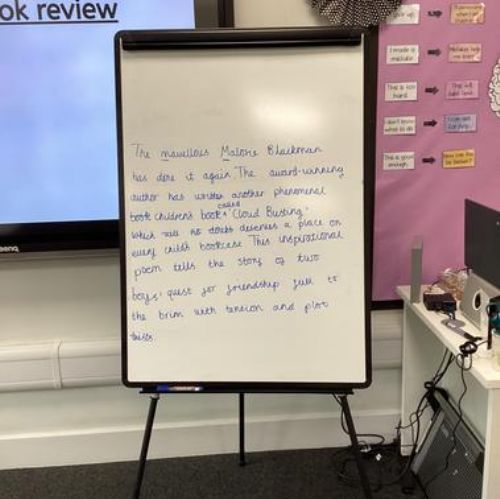 ok review
The mavellous Malorie Blackman
has done it again. The award-winning
author has written another phenomenal
book children's book called 'Cloud Busting'
which no doubt deserves a place on
every child's bookcase. This inspirational
poem tells the story of two
boys' quest for friendship full to
the brim with tension and plot
twists.
I made a mistake
This is too hard
I don't know what to do
This is good enough
benq